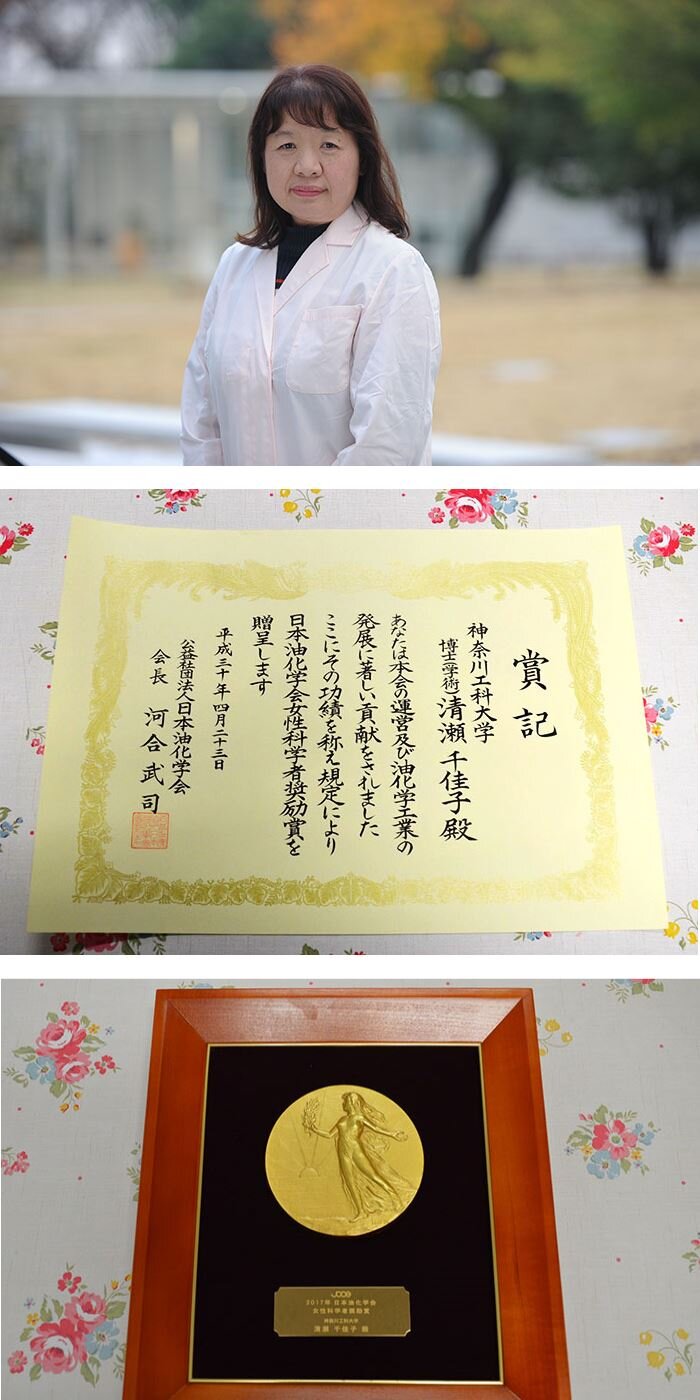 賞記
神奈川工科大学
博士(学術)清瀬千佳子殿
あなたは本会の運営及び油化学工業の
発展に著しい貢献をされました
ここにその功績を称え規定により
日本油化学会女性科学者奨励賞を
贈呈します
平成三十年四月二十三日
公益社団法人日本油化学会
会長 河合武司
JOCS
2017年 日本油化学会
女性科学者奨励賞
神奈川工科大学
清瀬 千佳子 殿